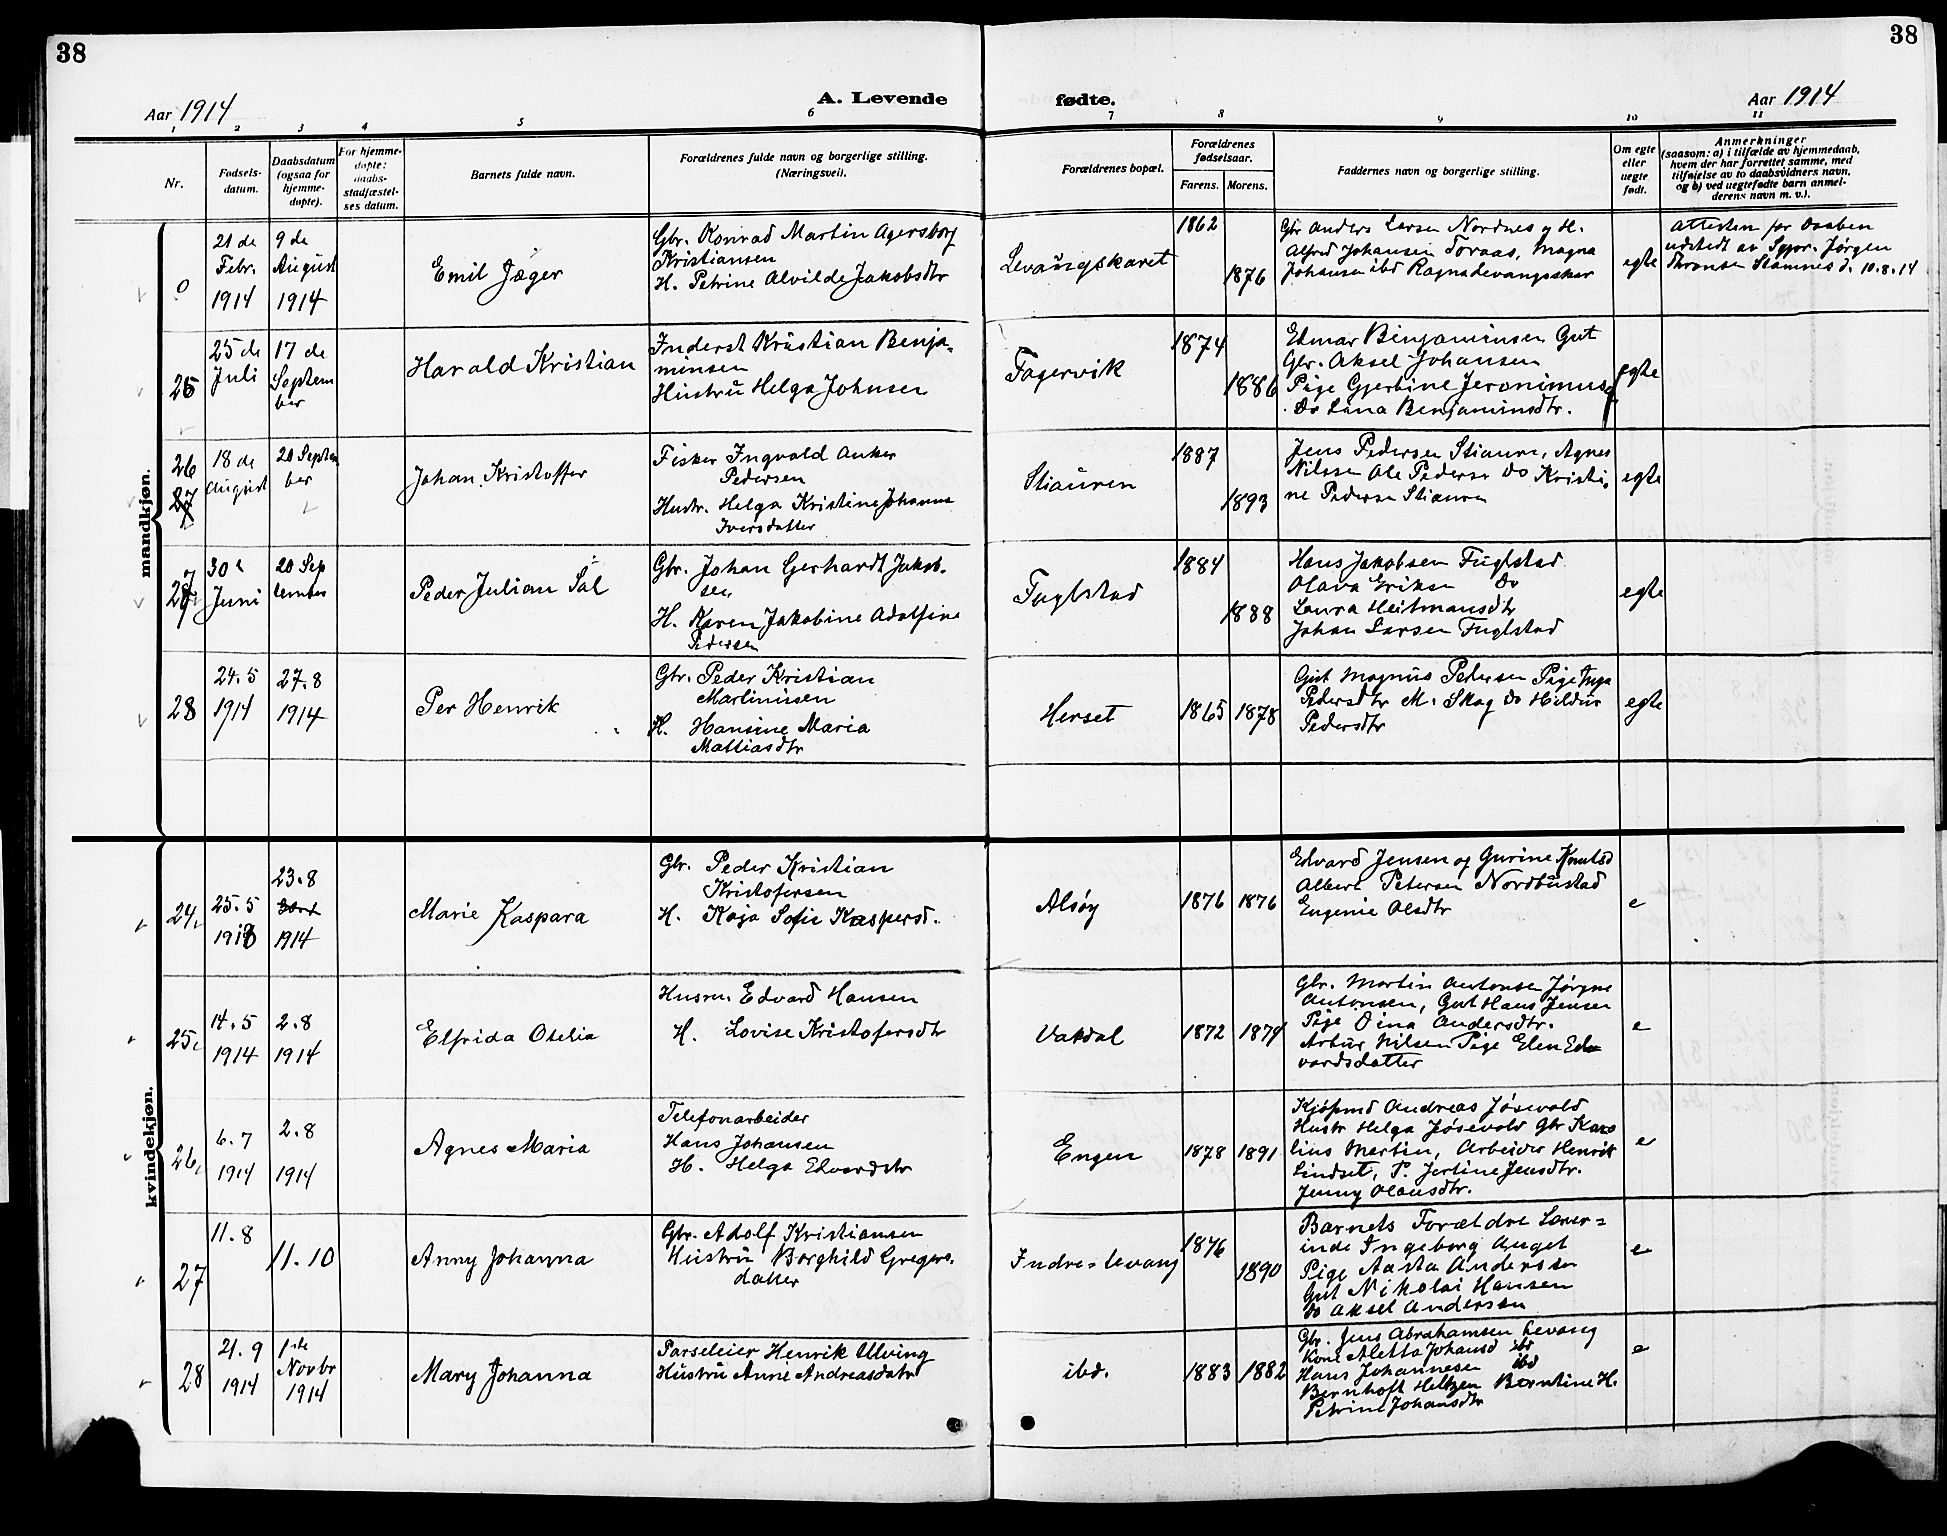 38
38
Aar 1914
A. Levende
fødte.
Aar 1914
1 2 3 4 5 6 7 8 9 10 11
Nr.
Fødsels-
datum.
Daabsdatum
(ogsaa for
hjemme-
døpte).
For hjemme-
døpte:
daabs-
stadfæstel-
ses datum.
Barnets fulde navn.
Forældrenes fulde navn og borgerlige stilling.
(Næringsvei).
Forældrenes bopæl.
Forældrenes
fødselsaar.
Farens. Morens.
Faddernes navn og borgerlige stilling.
Om egte
eller
uegte
født.
Anmerkninger
(saasom: a) i tilfælde av hjemmedaab,
hvem der har forrettet samme, med
tilføielse av to daabsvidners navn,
og b) ved uegtefødte barn anmel-
derens navn m. v.).
mandkjøn.
0
21 de
Febr.
1914
9 de
August
1914
Emil Jæger
Gbr. Konrad Martin Agersborg
Kristiansen
H. Petrine Alvilde Jakobsdtr
Levangskaret
1862
1876
Gbr Anders Larsen Nordnes og H.
Alfred Johansen Toraas, Magna
Johansen ibd Ragna Levangsskar
egte
Attesten for Daaben
udstedt av Sgpr. Jørgen
Stamnes d. 10.8.14
25
25 de
Juli
17 de
Septem
ber
Harald Kristian
Inderst Kristian Benja-
minsen
Hustru Helga Johnsen
Fagervik
1874
1886
Edmar Benjaminsen Gut
Gbr. Aksel Johansen
Pige Gjertine Jeronimus
Do Lina Benjaminsdtr.
egte
26
18 de
August
20 Septem
ber
Johan Kristoffer
Fisker Ingvald Anker
Pedersen
Hustr. Helga Kristine Johanna
Iversdatter
Stiauren
1887
1893
Jens Pedersen Stiauren, Agnes
Nilsen Ole Pedersen Do Kristi-
ne Pedersen Stiauren
egte
27
30
Juni
20 Sep
tember
Peder Julian Sal
Gbr. Johan Gerhardt Jakob-
sen
H. Karen Jakobine Adolfine
Pedersen
Fuglstad
1884
1888
Hans Jakobsen Fuglstad
Olava Eriksen Do
Laura Heitmansdtr
Johan Larsen Fuglstad
egte
28
24.5
1914
27.8
1914
Per Henrik
Gbr. Peder Kristian
Martinussen
H. Hansine Maria
Mattiasdtr
Herset
1865
1878
Gut Magnus Pedersen Pige Inga
Pedersdtr M. Skog Do Hildur
Pedersdtr
egte
kvindekjøn.
24,
25.5
23.8
1914
Marie Kaspara
Gbr. Peder Kristian
Kristofersen
H. Kaja Sofie Kaspersd.
Alsøy
1876
1876
Edvard Jensen og Gurine Knutsd
Albert Petersen Nordbustad
Eugenie Olsdtr
e
25,
14.5
1914
2.8
1914
Elfrida Otelia
Husm. Edvard Hansen
H. Lovise Kristofersdtr
Vatdal
1872
1874
Gbr. Martin Antonsen Jørgine
Antonsen, Gut Hans Jensen
Pige Dina Andersdtr.
Artur Nilsen Pige Elen Ed
vardsdatter
e
26,
6.7
1914
2.8
1914
Agnes Maria
Telefonarbeider
Hans Johansen
H. Helga Edvardsdtr
Engen
1878
1891
Kjøpmd Andreas Jøsevold
Hustr Helga Jøsevold Gbr Karo
lius Martin, Arbeider Henrik
Lindset, P. Jertine Jensdtr.
Jenny Olausdtr.
e
27
11.8
11.10
Anny Johanna
Gbr. Adolf Kristiansen
Hustru Borghild Gregers-
datter
Indre-Levang
1876
1890
Barnets Forældre Lærer-
inde Ingeborg Auget
Pige Aasta Andersen
Gut Nikolai Hansen
Do Aksel Andersen
e
28
21.9
1914
1ste
Novbr
1914
Mary Johanna
Parseleier Henrik Ulving
Hustru Anne Andreasdatr
ibd.
1883
1882
Gbr. Jens Abrahamsen Levang
Kone Aletta Johansd ibd
Hans Johannesen ibd
Bernhoft Heltzen Berntine H.
Petrine Johansdtr
e